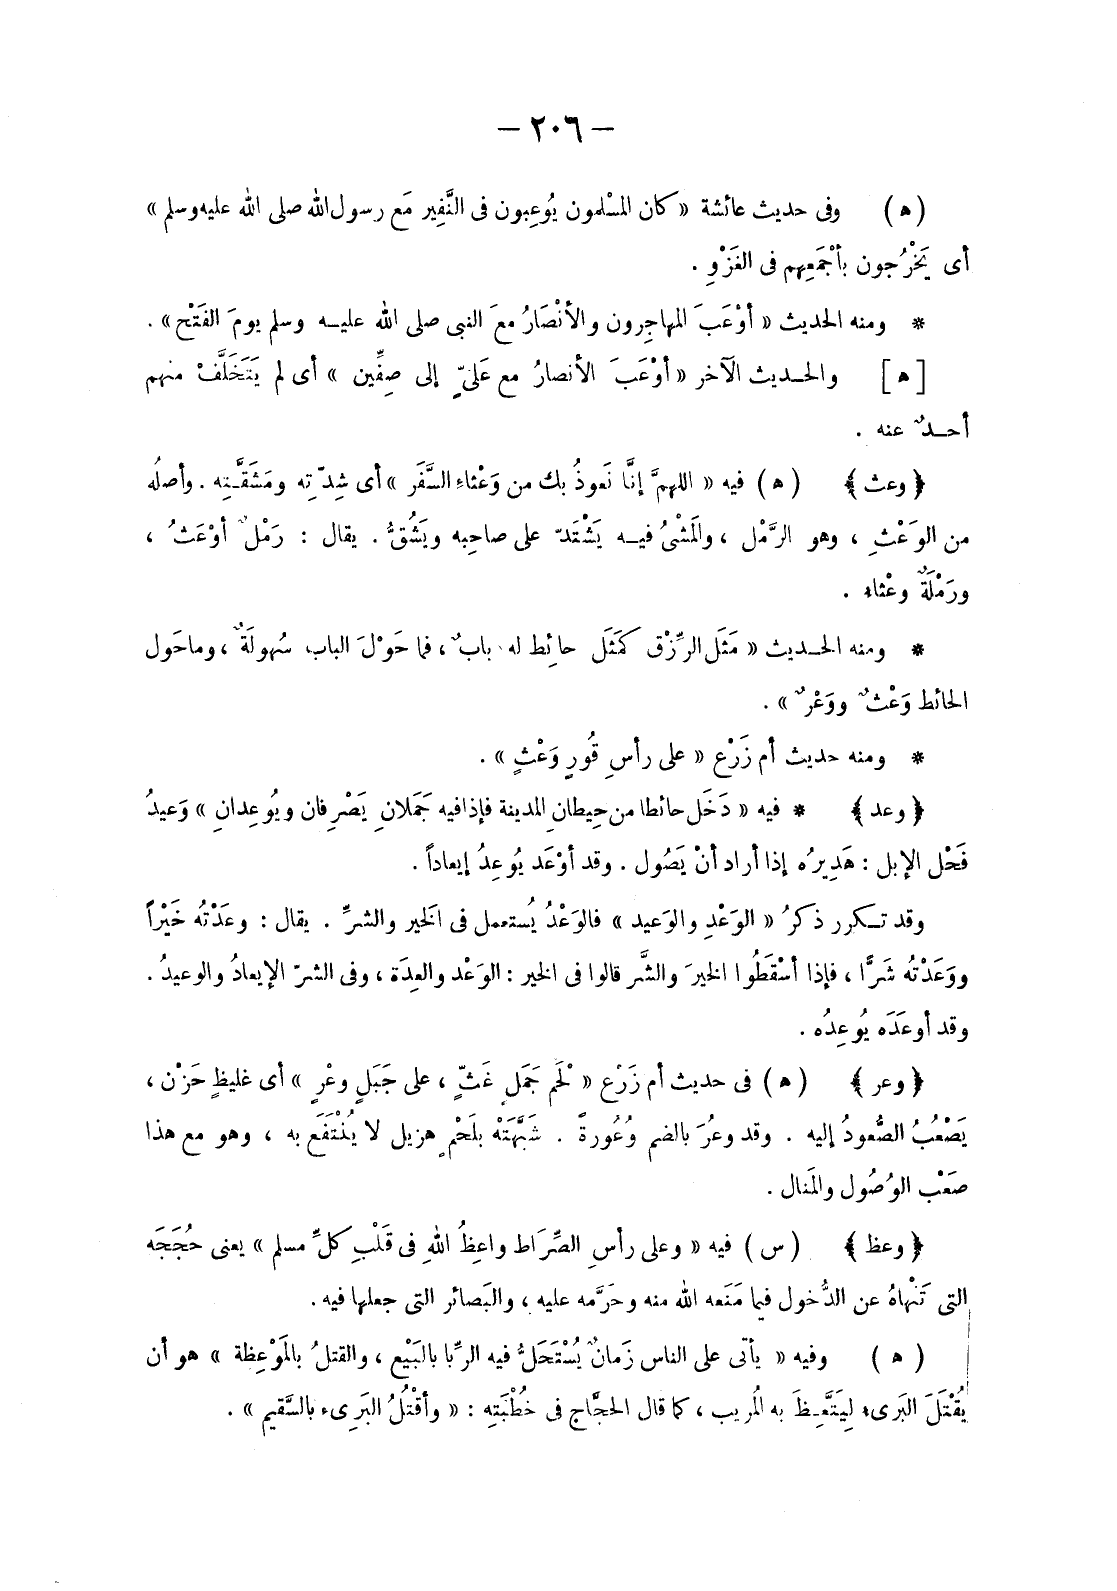 — ٢٠٦ —
( ه ) وفى حديث عائشة « كان المسْلمون يُوعِبون فى النَّفِير مَع رسول الله صلى الله عليه وسلم »
أى يَخْرُجون بأجْمَعِهم فى الغَزْوِ .
* ومنه الحديث « أوْعَبَ المهاجِرون والأنْصَارُ معَ النبى صلى الله عليـه وسلم يومَ الفَتْح » .
[ ه ] والحـديث الآخر « أوْعَبَ الأنصارُ مع عَلىٍّ إلى صِفِّين » أى لم يَتَخَلَّفْ منهم
أحـدٌ عنه .
﴿ وعث ﴾ ( ه ) فيه « اللهمَّ إنَّا نَعوذُ بك من وَعْثاءِ السَّفَر » أى شِدّتِه ومَشَقَّتِه . وأصلُه
من الوَعْثِ ، وهو الرَّمْل ، والمَشْىُ فيـه يَشْتَدّ على صاحِبه ويَشُقُّ . يقال : رَمْلٌ أوْعَثُ ،
ورَمْلَةٌ وعْثاء .
* ومنه الحـديث « مَثَل الرِّزْق كمَثَل حائِط له بابٌ ، فما حَوْلَ الباب سُهولَةٌ ، وماحَول
الحائط وَعْثٌ ووَعْرٌ » .
* ومنه حديث أم زَرْع « على رأسِ قُورٍ وَعْثٍ » .
﴿ وعد ﴾ * فيه « دَخَل حائطا من حِيطانِ المدينة فإذا فيه جَمَلانِ يَصْرِفان ويُوعِدانِ » وَعيدُ
فَحْل الإبل : هَدِيرُه إذا أراد أنْ يَصُول . وقد أوْعَد يُوعِدُ إيعاداً .
وقد تـكرر ذكرُ « الوَعْدِ والوَعيد » فالوَعْدُ يُستعمل فى الَخير والشرِّ . يقال : وعَدْتُه خَيْراً
ووَعَدْتُه شَرًّا ، فإذا أسْقَطُوا الخيرَ والشَّر قالوا فى الخير : الوَعْد والعِدَة ، وفى الشرّ الإيعادُ والوعيدُ .
وقد أوعَدَه يُوعِدُه .
﴿ وعر ﴾ ( ه ) فى حديث أم زَرْع « لَحْم جَمَلٍ غَثٍّ ، على جَبَلٍ وعْرٍ » أى غليظٍ حَزْن ،
يَصْعُبُ الصُّعودُ إليه . وقد وعُرَ بالضم وُعُورةً . شَبَّهَتْه بلَحْمٍ هزيل لا يُنْتَفَع به ، وهو مع هذا
صَعْب الوُصُول والمَنال .
﴿ وعظ ﴾ ( س ) فيه « وعلى رأسِ الصِّرَاط واعِظُ اللهِ فى قَلْبِ كلِّ مسلم » يعنى حُجَجَه
التى تَنْهاهُ عن الدُّخول فيما مَنَعه الله منه وحَرَّمه عليه ، والبَصائر التى جعلها فيه .
( ه ) وفيه « يأتى على الناس زَمانٌ يُسْتَحَلُّ فيه الرِّبا بالبَيْع ، والقتلُ بالمَوْعِظة » هو أن
يُقْتَلَ البَرىء لِيَتَّعِـظَ به المُريب ، كما قال الحجَّاج فى خُطْبَتِه : « وأقْتُلُ البَرِىء بالسَّقيم » .